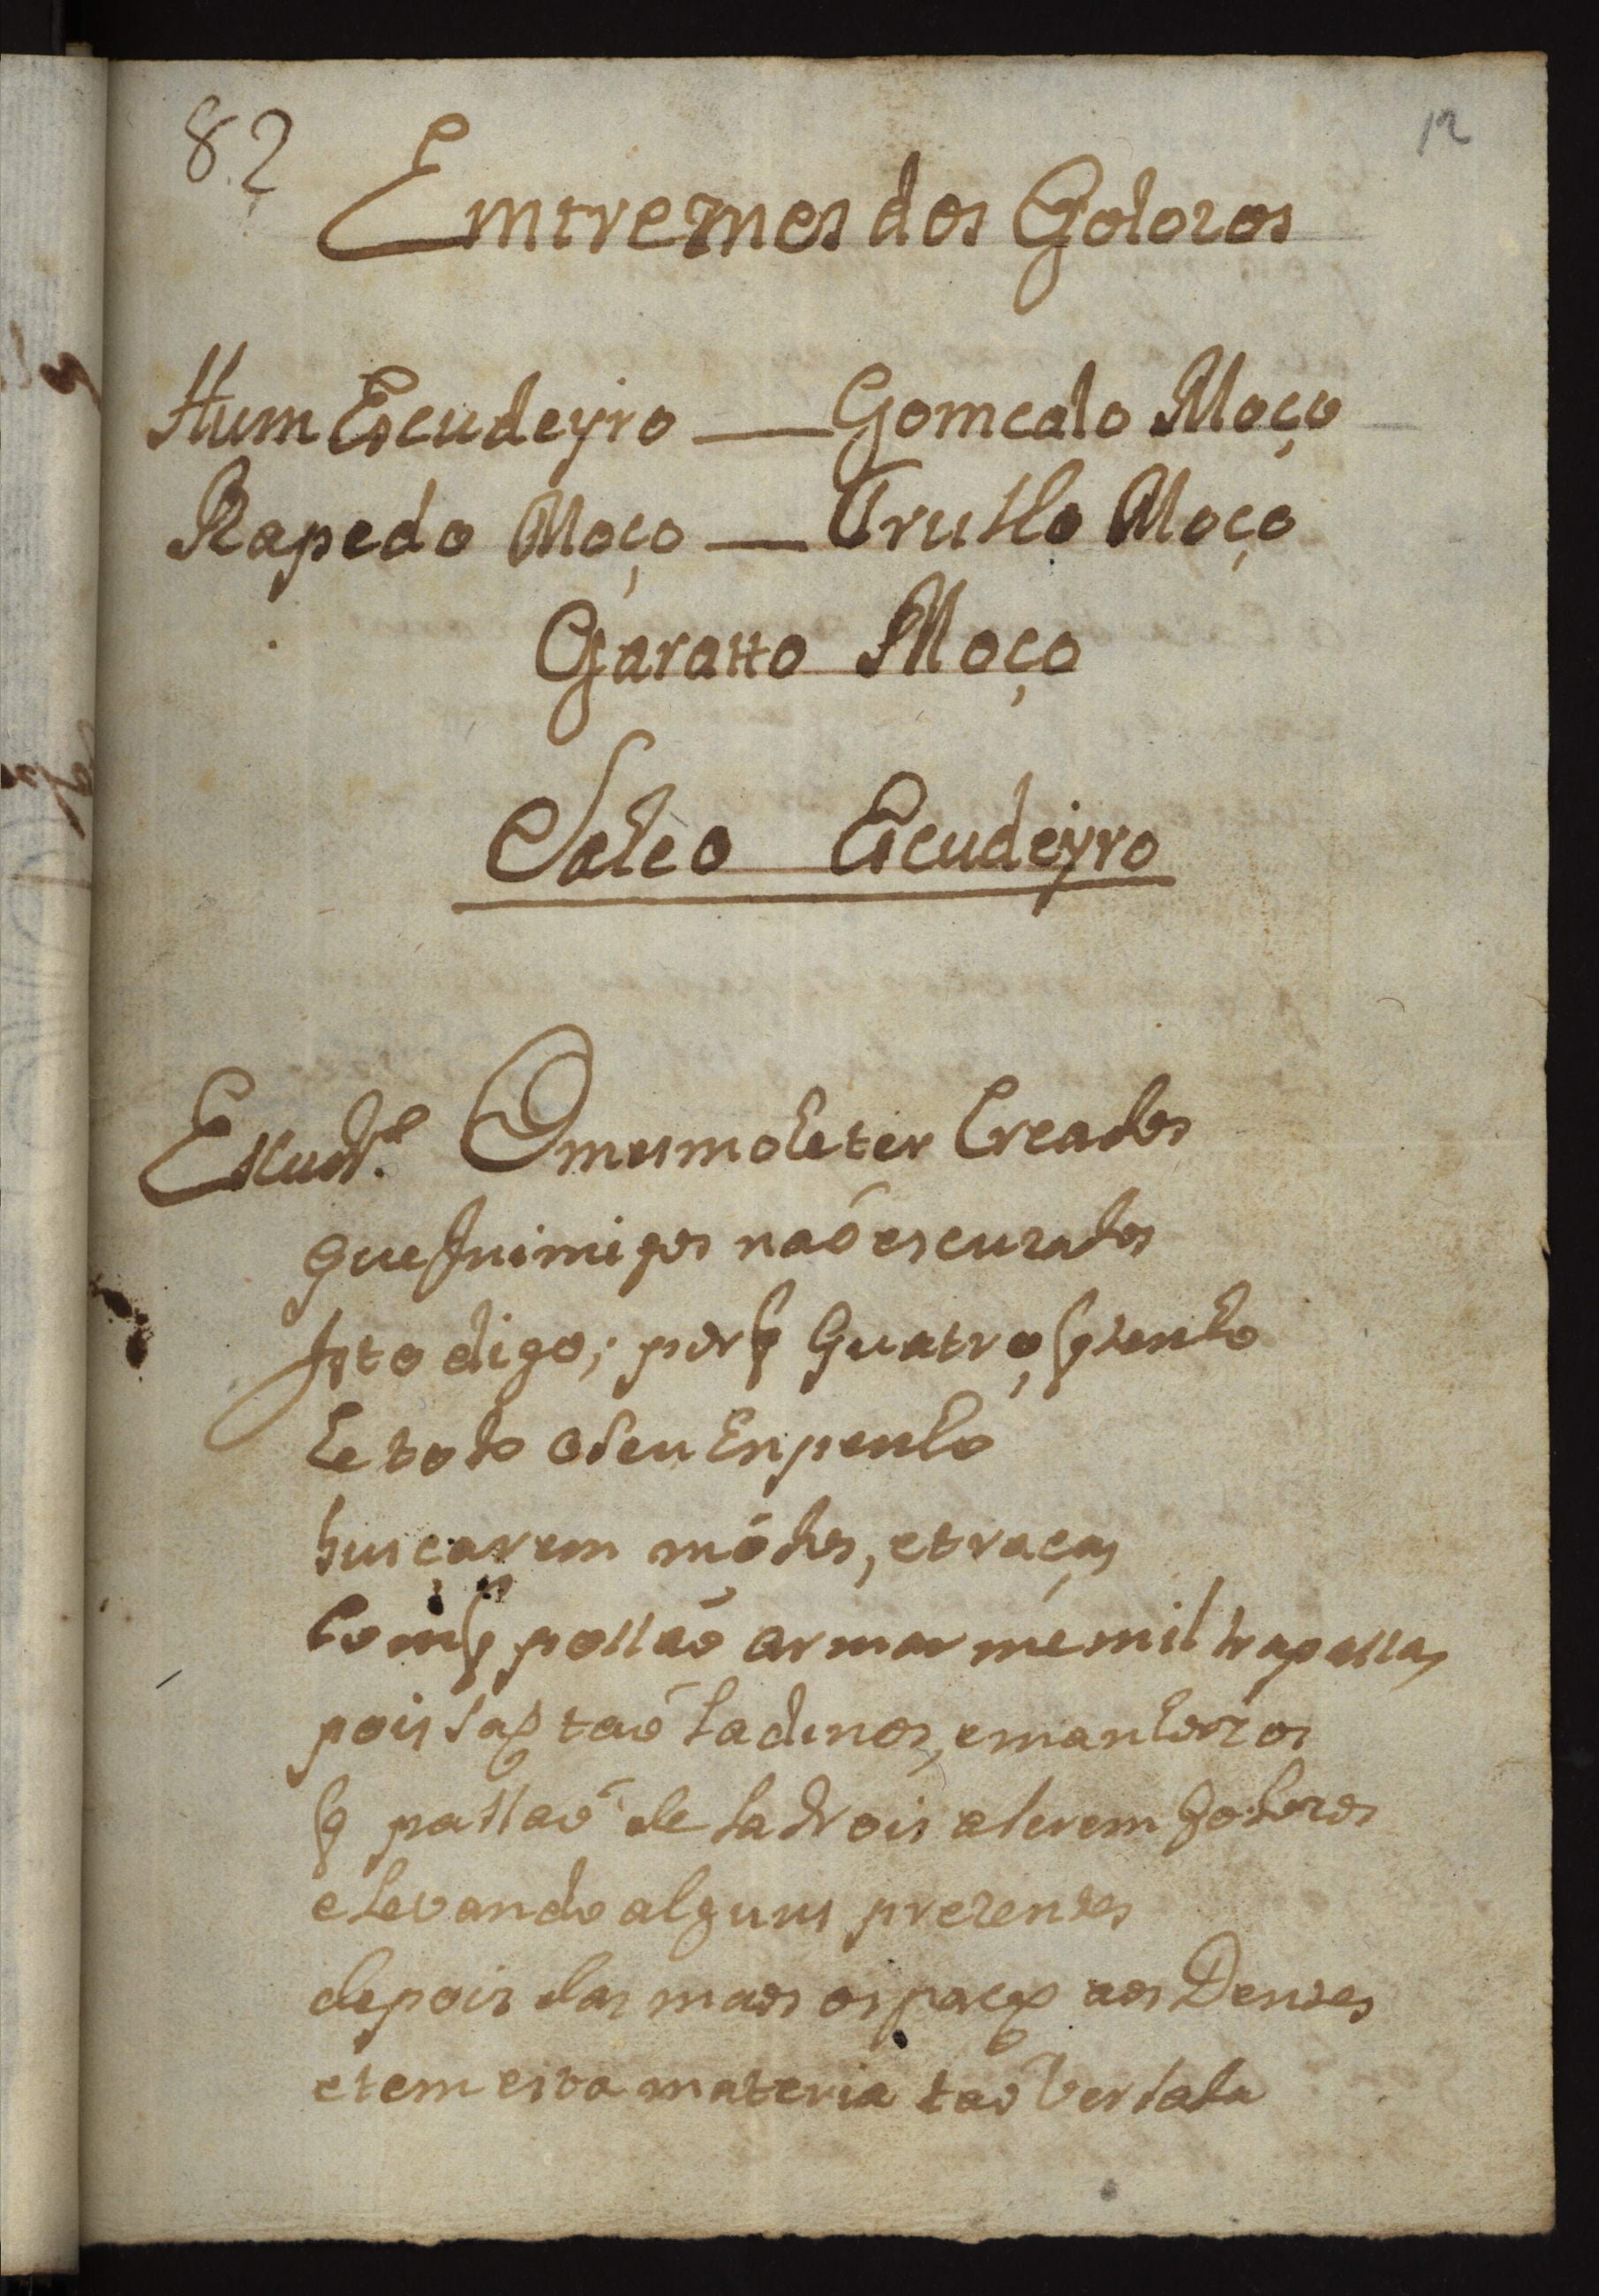 82
12
Emtremes dos Golozos
Hum Escudeyro — Gomcalo Moço
Rapedo Moço — Trusslo Moço
Garatto Moço
Saleo Escudeyro
Escudr.º O mesmo he ter Creados
que Inimigos naõ escuzados
Isto digo; porq̃ quatro, q̃ tenho
he todo o seu Enpenho
buscarem módos, e traças
Com q̃ possaõ armar me mil trapassas
pois saõ taõ ladinos, e manhozos
q̃ passaõ de ladrois a serem golozos
e levando alguns prezentes
depois das maos os paçaõ aos Dentes
e tem esta materia taõ versada